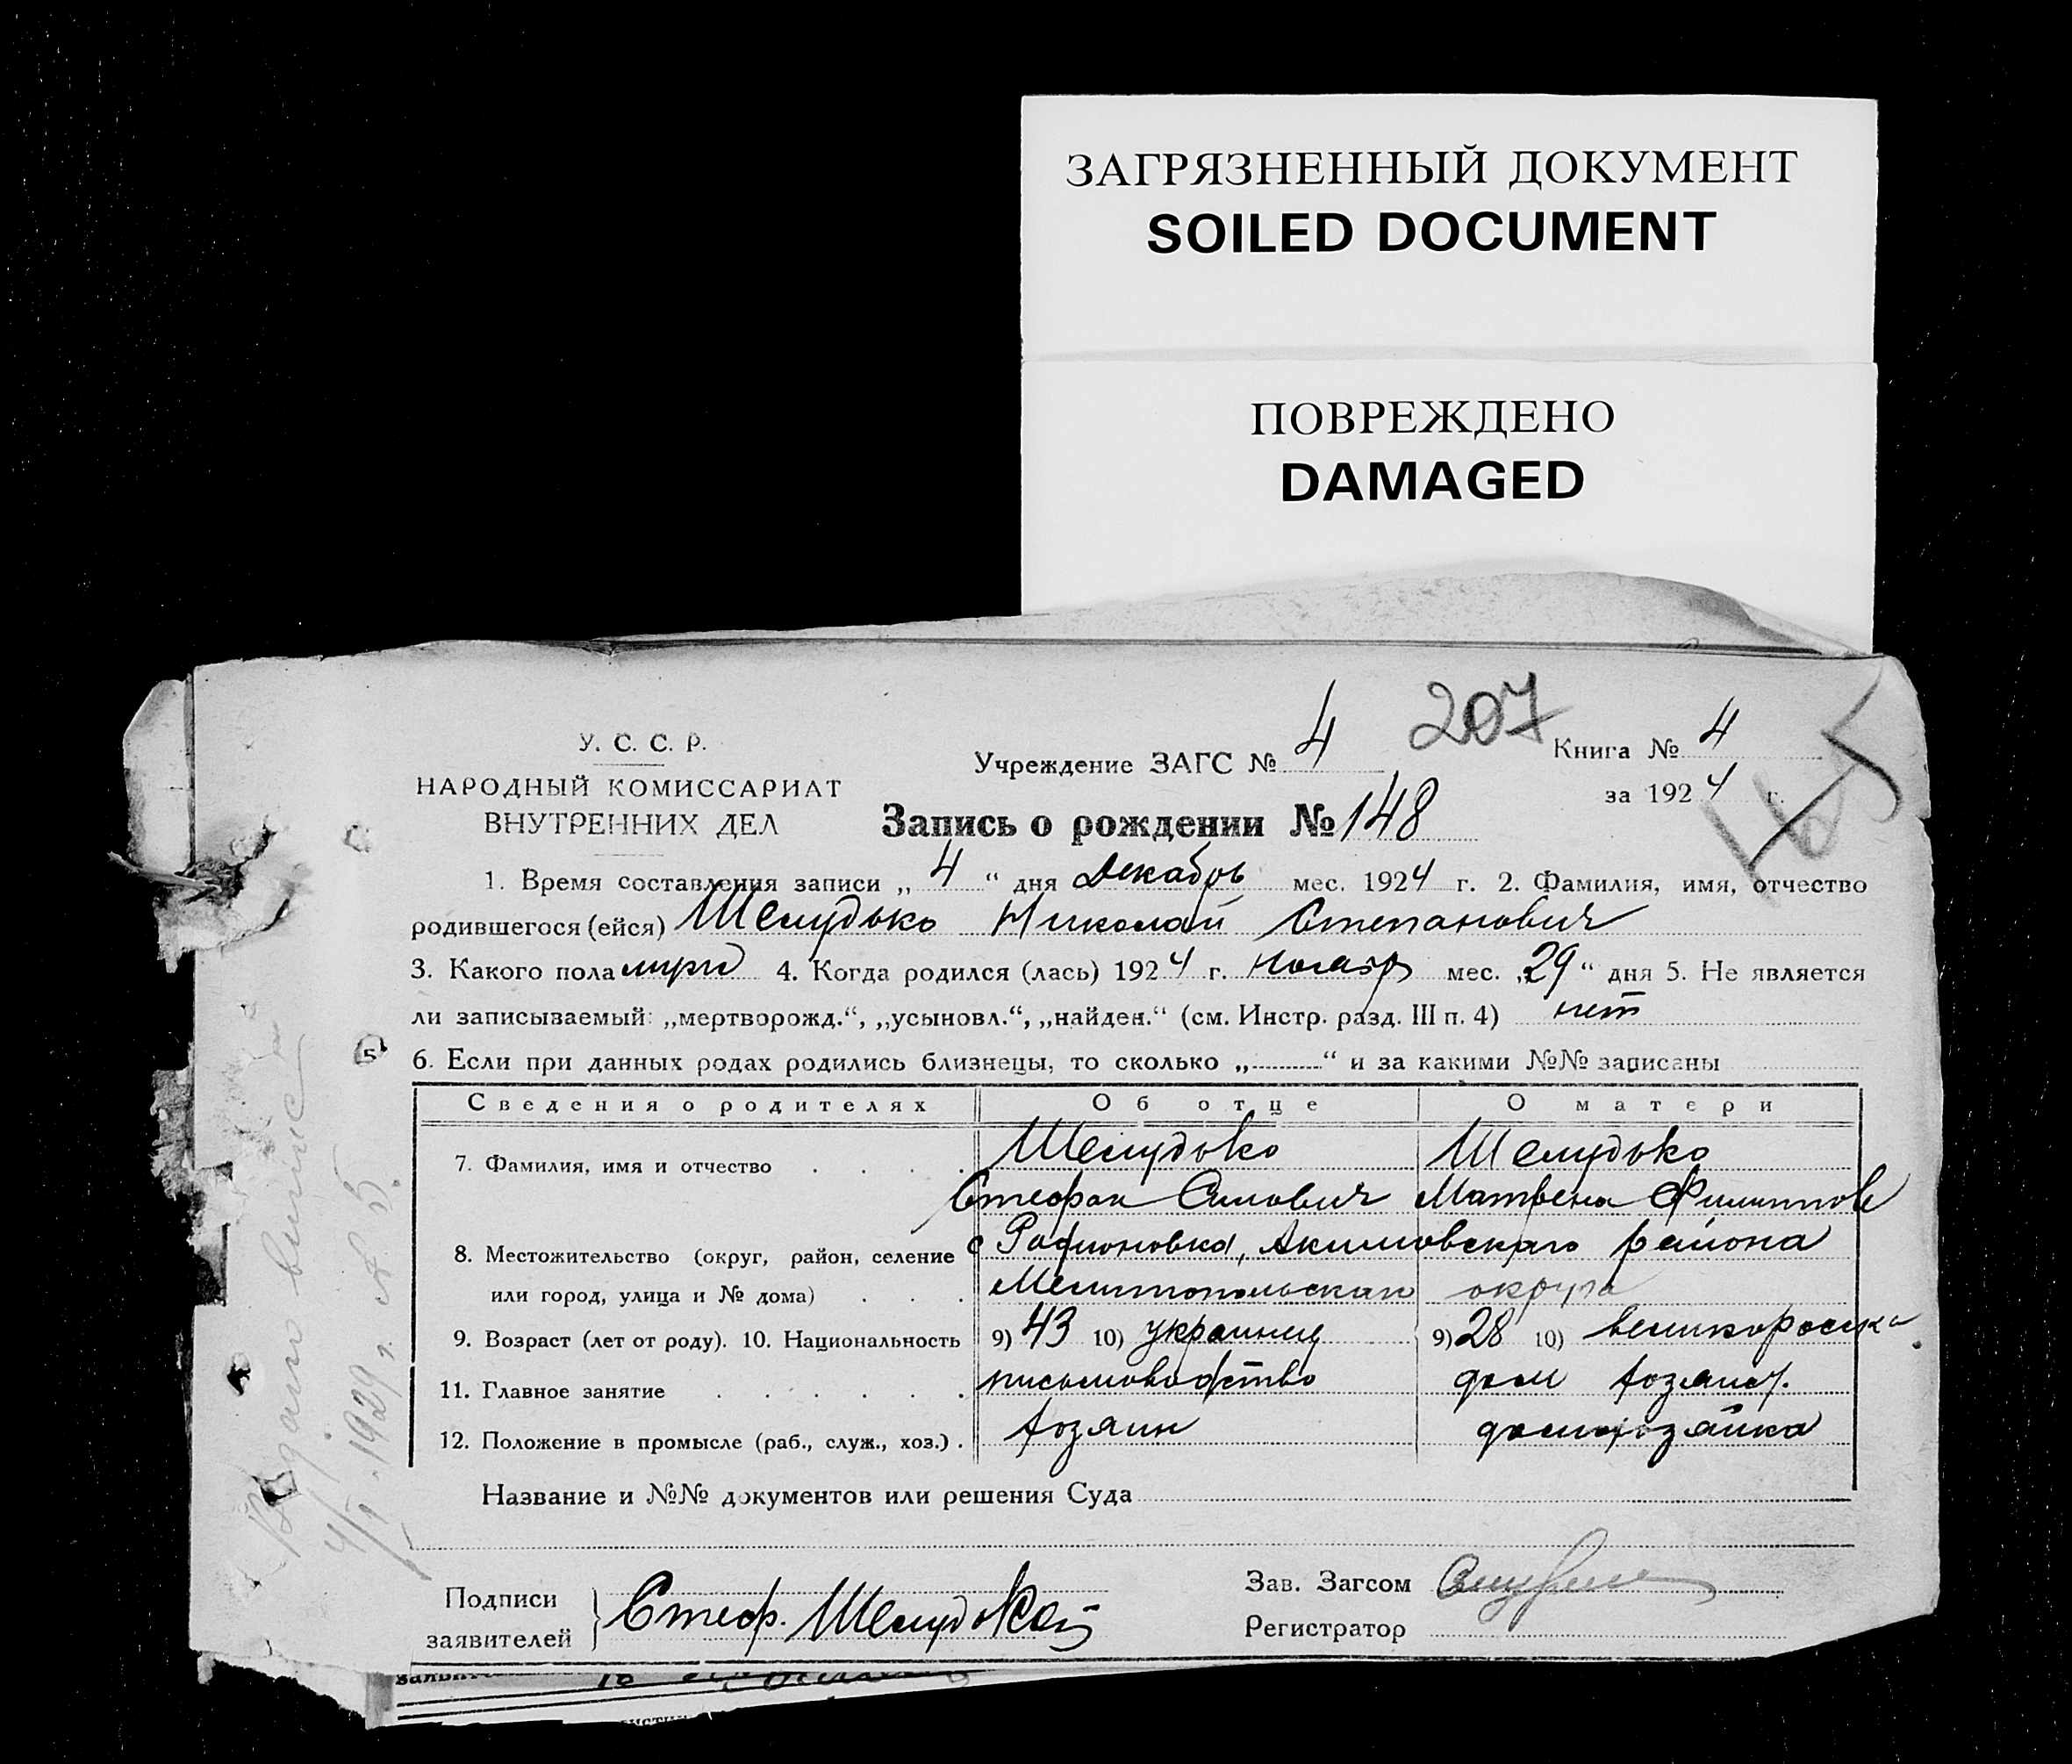 ЗАГРЯЗНЕННЫЙ ДОКУМЕНТ
SOILED DOCUMENT
ПОВРЕЖДЕНО
DAMAGED
207
У. С. С. Р.
НАРОДНЫЙ КОМИССАРИАТ
ВНУТРЕННИХ ДЕЛ
Учреждение ЗАГС № 4
Книга № 4
за 1924 г.
Запись о рождении № 148
1. Время составления записи „ 4 “ дня Декабрь мес. 1924 г. 2. Фамилия, имя, отчество
родившегося (ейся) Шелудько Николай Степанович
3. Какого пола 4. Когда родился (лась) 1924 г. ноябр мес. „29“ дня 5. Не является
ли записываемый: „мертворожд.“, „усыновл.“, „найден.“ (см. Инстр. разд. III п. 4) нет
6. Если при данных родах родились близнецы, то сколько „.........“ и за какими №№ записаны
Сведения о родителях Об отце О матери
7. Фамилия, имя и отчество . . . . Шелудько Шелудько
Стефан Силович Матрена Филиппов
8. Местожительство (округ, район, селение с Родионовка, Акимовскаго района
или город, улица и № дома) . . . Мелитопольскаго округа
9. Возраст (лет от роду). 10. Национальность 9) 43 10) украинец 9) 28 10) великоросска
11. Главное занятие . . . . . . письмоводство дом хозяйст.
12. Положение в промысле (раб., служ., хоз.) . хозяин домохозяйка
Название и №№ документов или решения Суда
Подписи
заявителей } Стеф. Шелудько
Зав. Загсом
Регистратор
5
Выдано выпись
4/I 1929 г. № 5.